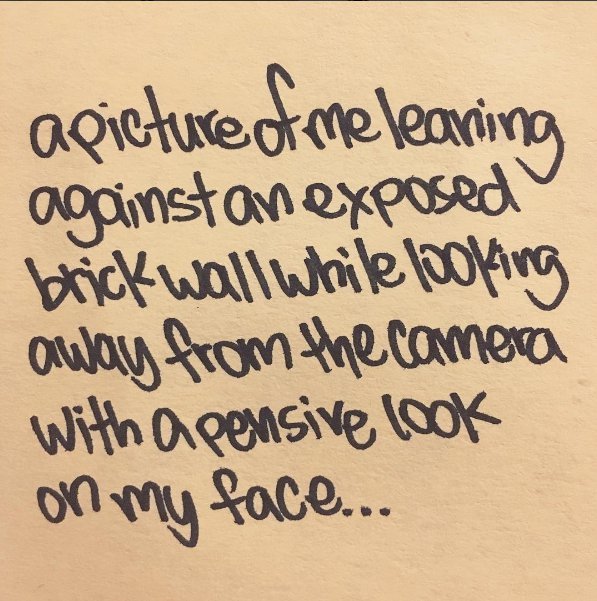 a picture of me leaning
against an exposed
brick wall while looking
away from the camera
with a pensive look
on my face...